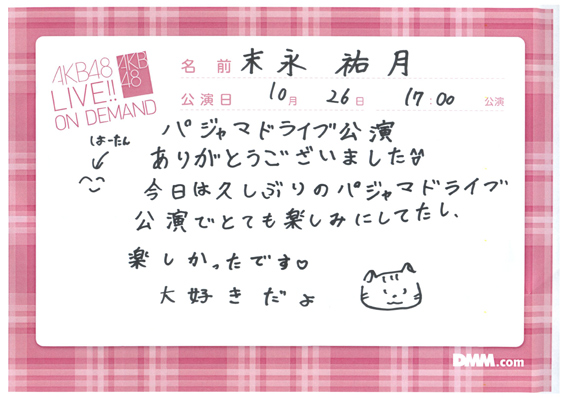 AKB48
LIVE!!
ON DEMAND
AKB
48
名前 末永 祐月
公演日 10月 26日 17:00 公演
はーたん
パジャマドライブ公演
ありがとうございました
今日は久しぶりのパジャマドライブ
公演でとても楽しみにしてたし、
楽しかったです♡
大好きだよ
DMM.com